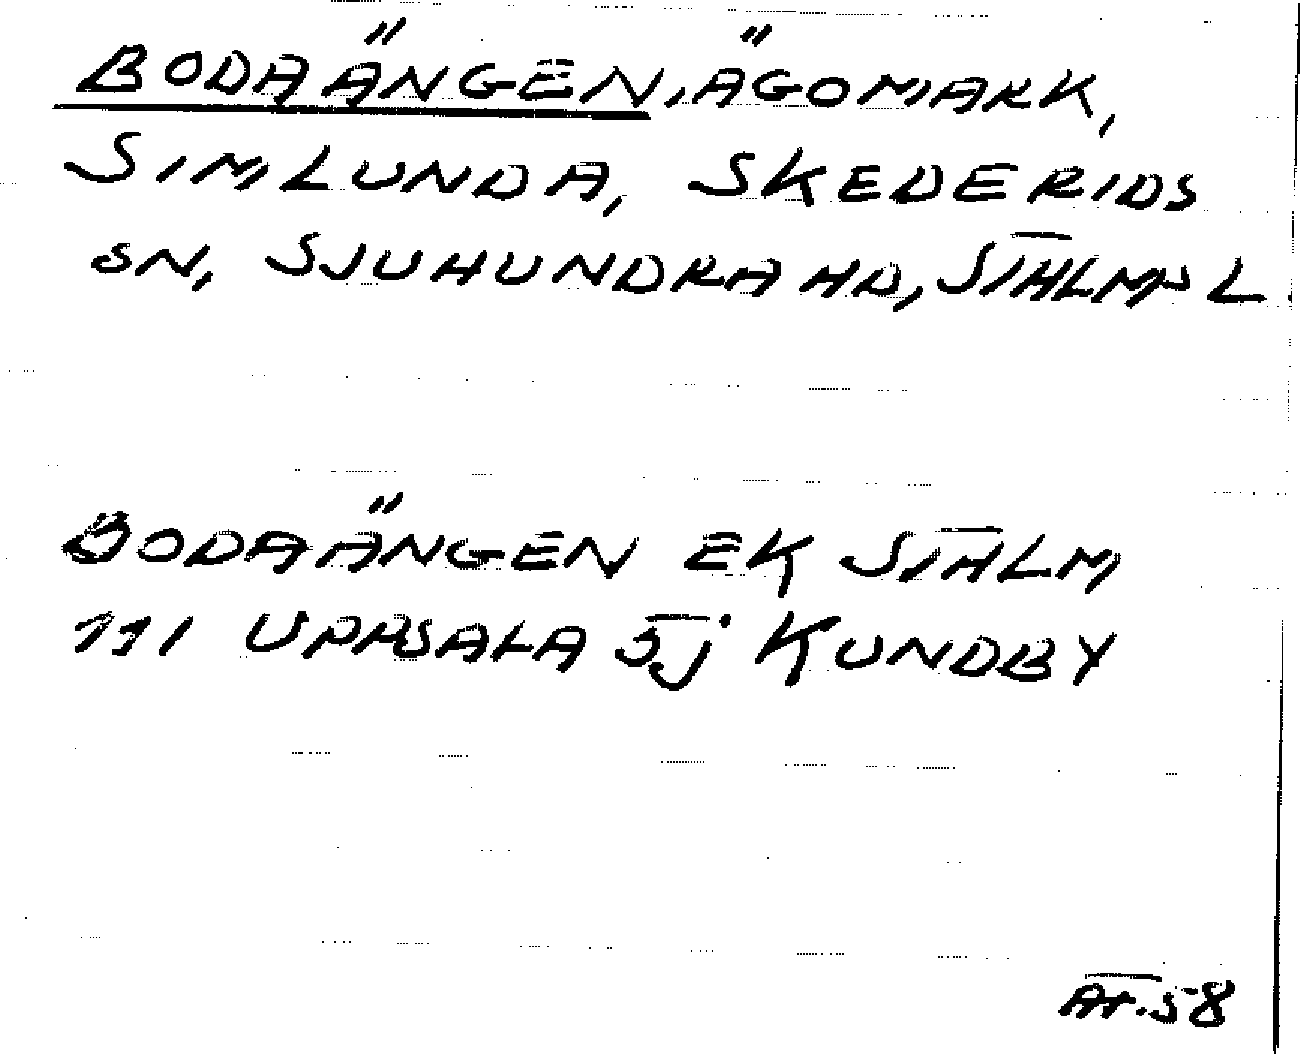 BODAÄNGEN, ÄGOMARK,
SIMLUNDA, SKEDERIDS
SN, SJUHUNDRA HD, STHLMS L
BODAÄNGEN EK STHLM
111 UPPSALA 5j KUNDBY
AT.58